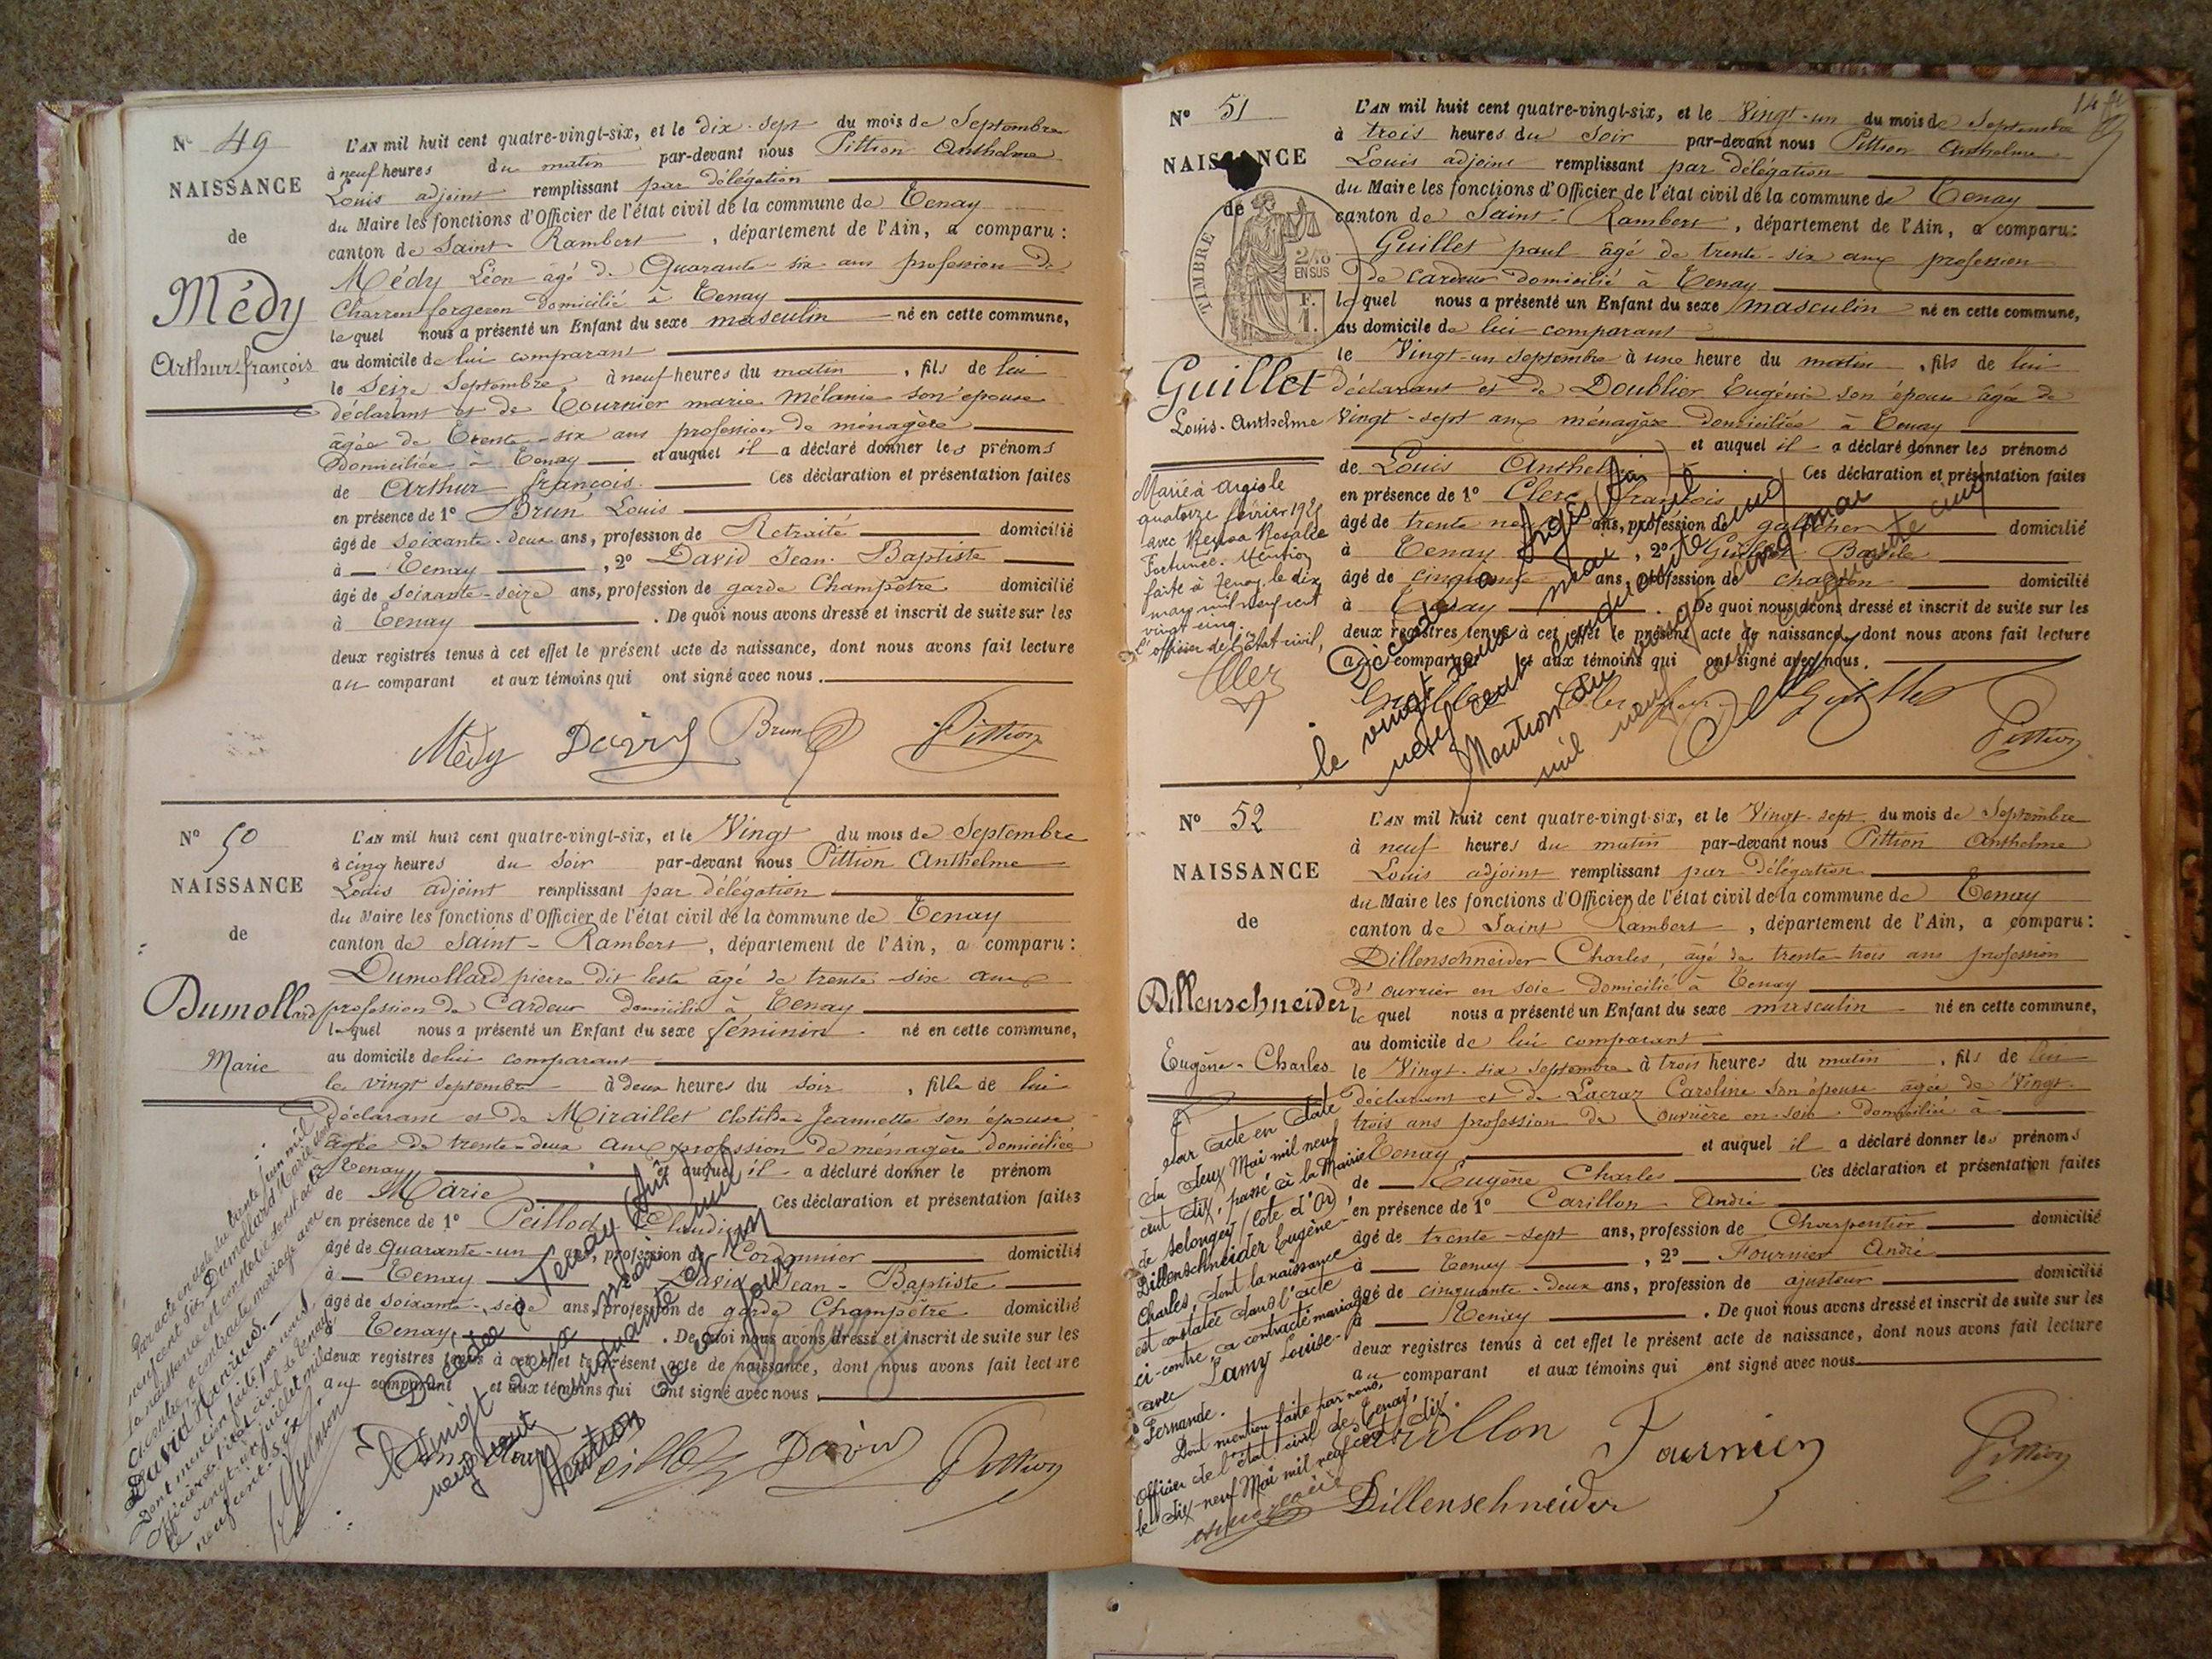 N° 49
NAISSANCE
de
Médy
Arthur françois
L'AN mil huit cent quatre-vingt-six, et le dix-sept du mois de Septembre
à neuf heures du matin par-devant nous Pittion Anthelme
Louis adjoint remplissant par délégation
du Maire les fonctions d'Officier de l'état civil de la commune de Tenay
canton de Saint-Rambert, département de l'Ain, a comparu :
Médy Léon âgé de Quarante-six ans profession de
Charron forgeron domicilié à Tenay
lequel nous a présenté un Enfant du sexe masculin né en cette commune,
au domicile de lui comparant
le Seize Septembre à neuf heures du matin, fils de lui
déclarant et de Tournier marie Mélanie son épouse
âgée de Trente-six ans profession de ménagère
Domiciliée à Tenay et auquel il a déclaré donner les prénoms
de Arthur françois Ces déclaration et présentation faites
en présence de 1° Brun Louis
âgé de soixante-deux ans, profession de Retraité domicilié
à Tenay, 2° David Jean-Baptiste
âgé de soixante-seize ans, profession de garde Champêtre domicilié
à Tenay. De quoi nous avons dressé et inscrit de suite sur les
deux registres tenus à cet effet le présent acte de naissance, dont nous avons fait lecture
au comparant et aux témoins qui ont signé avec nous.
Médy David Brun Pittion
N° 50
NAISSANCE
de
Dumollard
Marie
L'AN mil huit cent quatre-vingt-six, et le Vingt du mois de Septembre
à cinq heures du soir par-devant nous Pittion Anthelme
Louis adjoint remplissant par délégation
du Maire les fonctions d'Officier de l'état civil de la commune de Tenay
canton de Saint-Rambert, département de l'Ain, a comparu :
Dumollard pierre dit leste âgé de trente-six ans
profession de Cardeur domicilié à Tenay
lequel nous a présenté un Enfant du sexe féminin né en cette commune,
au domicile de lui comparant
le vingt septembre à deux heures du soir, fille de lui
déclarant et de Miraillet Clotilde Jeannette son épouse
âgée de trente-deux ans profession de ménagère domiciliée
à Tenay et auquel il a déclaré donner le prénom
de Marie Ces déclaration et présentation faites
en présence de 1° Peillod Claudius
âgé de quarante-un ans, profession de Cordonnier domicilié
à Tenay David Jean-Baptiste
âgé de soixante-seize ans, profession de garde Champêtre domicilié
à Tenay. De quoi nous avons dressé et inscrit de suite sur les
deux registres tenus à cet effet le présent acte de naissance, dont nous avons fait lecture
au comparant et aux témoins qui ont signé avec nous.
Décédée à Tenay (Ain)
le vingt deux mai mil
neuf cent cinquante et un
Mention le jour
Peillod David Pittion
Par acte en date du trente juin mil
neuf cent six, Dumollard Marie dont
la naissance est constatée dans l'acte
ci-contre, a contracté mariage avec
David Marius.
Dont mention faite par nous
officier de l'état civil de Tenay
le vingt juillet mil
neuf cent six
14
N° 51
NAISSANCE
de
TIMBRE
2/10
EN SUS
F.
1.
Guillet
Louis-Anthelme
L'AN mil huit cent quatre-vingt-six, et le Vingt-un du mois de Septembre
à trois heures du soir par-devant nous Pittion Anthelme
Louis adjoint remplissant par délégation
du Maire les fonctions d'Officier de l'état civil de la commune de Tenay
canton de Saint-Rambert, département de l'Ain, a comparu :
Guillet paul âgé de trente-six ans profession
de cardeur domicilié à Tenay
lequel nous a présenté un Enfant du sexe masculin né en cette commune,
au domicile de lui comparant
le Vingt-un Septembre à une heure du matin, fils de lui
déclarant et de Doublier Eugénie son épouse âgée de
Vingt-sept ans ménagère domiciliée à Tenay
et auquel il a déclaré donner les prénoms
de Louis Anthelme Ces déclaration et présentation faites
en présence de 1° Clerc françois
âgé de trente neuf ans, profession de domicilié
à Tenay, 2° Guillet Basile
âgé de cinquante ans, profession de charron domicilié
à Tenay. De quoi nous avons dressé et inscrit de suite sur les
deux registres tenus à cet effet le présent acte de naissance, dont nous avons fait lecture
au comparant et aux témoins qui ont signé avec nous.
Décédé à Argis (Ain)
le vingt mai mil
neuf cent cinquante cinq
Mention du vingt cinq mai
mil neuf cent cinquante cinq
Pittion
Marié à Argis le
quatorze février 1925
avec Rosalie
Fortunée. Mention
faite à Tenay le dix
mars mil neuf cent
vingt cinq.
L'officier de l'état civil,
N° 52
NAISSANCE
de
Dillenschneider
Eugène-Charles
L'AN mil huit cent quatre-vingt-six, et le Vingt-sept du mois de Septembre
à neuf heures du matin par-devant nous Pittion Anthelme
Louis adjoint remplissant par Délégation
du Maire les fonctions d'Officier de l'état civil de la commune de Tenay
canton de Saint Rambert, département de l'Ain, a comparu :
Dillenschneider Charles, âgé de trente-trois ans profession
d'ouvrier en soie Domicilié à Tenay
lequel nous a présenté un Enfant du sexe masculin né en cette commune,
au domicile de lui comparant
le Vingt-six septembre à trois heures du matin, fils de lui
déclarant et de Lacraz Caroline son épouse âgée de Vingt-
trois ans profession de ouvrière en soie Domiciliée à
Tenay et auquel il a déclaré donner les prénoms
de Eugène Charles Ces déclaration et présentation faites
en présence de 1° Carillon André
âgé de trente-sept ans, profession de Charpentier domicilié
à Tenay, 2° Fournier André
âgé de cinquante-deux ans, profession de ajusteur domicilié
à Tenay. De quoi nous avons dressé et inscrit de suite sur les
deux registres tenus à cet effet le présent acte de naissance, dont nous avons fait lecture
au comparant et aux témoins qui ont signé avec nous.
Carillon Fournier Pittion
Dillenschneider
Par acte en date
du deux Mai mil neuf
cent dix, passé à la Mairie
de Selongey (Côte d'Or)
Dillenschneider Eugène-
Charles, dont la naissance
est constatée dans l'acte
ci-contre, a contracté mariage
avec Lamy Louise-
Fernande.
Dont mention faite par nous,
officier de l'état civil de Tenay,
le dix-neuf Mai mil neuf cent dix.